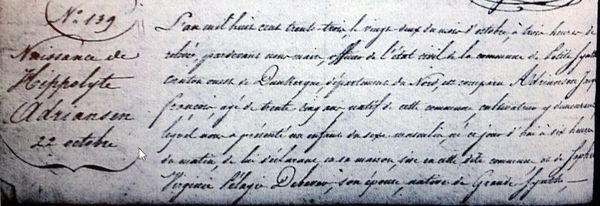 N.º 139
Naissance de
Hippolyte
Adriansen
22 octobre
L'an mil huit cent trente-trois, le vingt-deux du mois d'octobre, à trois heures de
relevée, pardevant nous maire, officier de l'état civil de la commune de Petite Synthe
canton ouest de Dunkerque, département du Nord est comparu Adriansen
françois, agé de trente cinq ans natif de cette commune cultivateur y demeurant
lequel nous a présenté un enfant du sexe masculin, né ce jour d'hui à six heures
du matin, de lui déclarant, en sa maison, sise en cette dite commune et de Sophie
Virginie Pélagie Deberver, son épouse, native de Grande Synthe